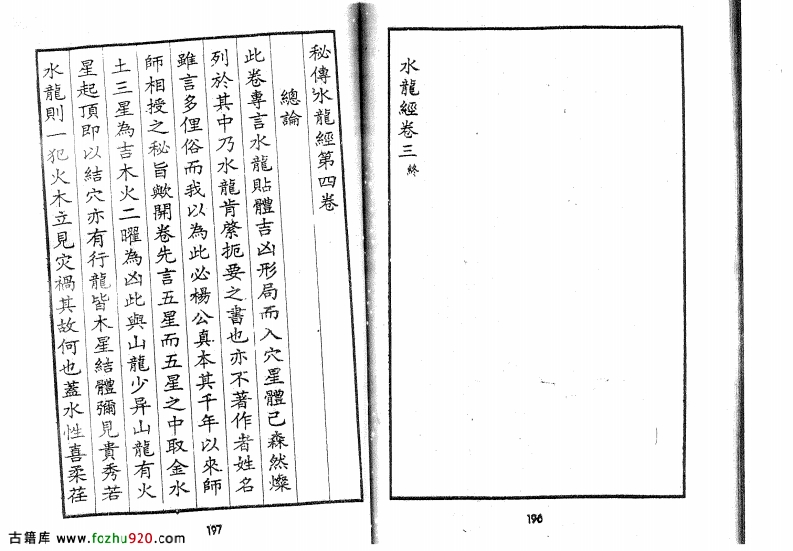 水龍經卷三終
196
秘傳水龍經第四卷
總論
此卷專言水龍貼體吉凶形局而入穴星體已森然燦
列於其中乃水龍肯綮扼要之書也亦不著作者姓名
雖言多俚俗而我以為此必楊公真本其千年以來師
師相授之秘旨歟開卷先言五星而五星之中取金水
土三星為吉木火二曜為凶此與山龍少异山龍有火
星起頂即以結穴亦有行龍皆木星結體彌見貴秀若
水龍則一犯火木立見灾禍其故何也蓋水性喜柔荏
197
古籍库 www.fozhu920.com